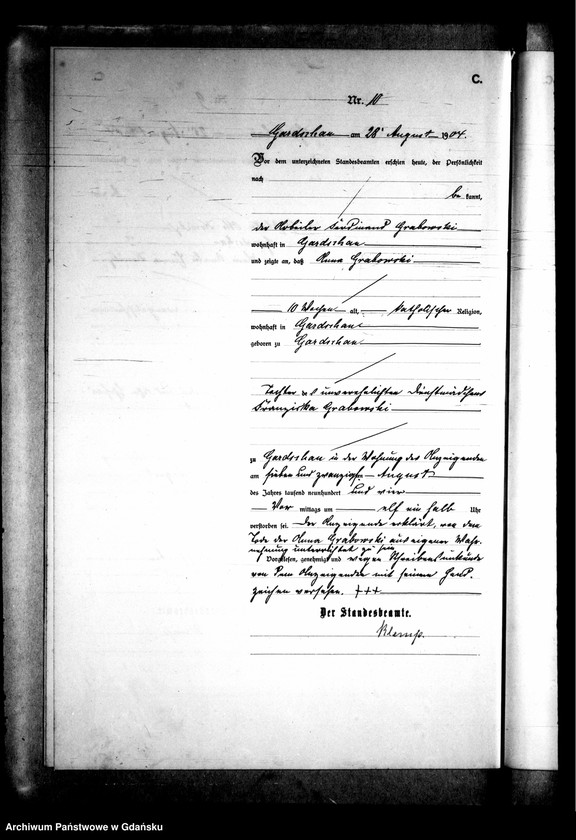 C.
Nr. 10
Gardschau am 28. August 1904.
Vor dem unterzeichneten Standesbeamten erschien heute, der Persönlichkeit
nach
be kannt,
der Arbeiter Ferdinand Grabowski
wohnhaft in Gardschau
und zeigte an, daß Anna Grabowski
10 Wochen alt, katholischer Religion,
wohnhaft in Gardschau
geboren zu Gardschau
Tochter der unverehelichten Dienstmädchens
Franziska Grabowski
zu Gardschau in der Wohnung des Anzeigenden
am sieben und zwanzigsten August
des Jahres tausend neunhundert und vier
Vor mittags um elf ein halb Uhr
verstorben sei. Der Anzeigende erklärt, von dem
Tode der Anna Grabowski aus eigener Wahr-
nehmung unterrichtet zu sein
Vorgelesen, genehmigt und wegen Schreibensunkunde
von dem Anzeigenden mit seinem Hand-
zeichen versehen. +++
Der Standesbeamte.
Klemp.
Archiwum Państwowe w Gdańsku